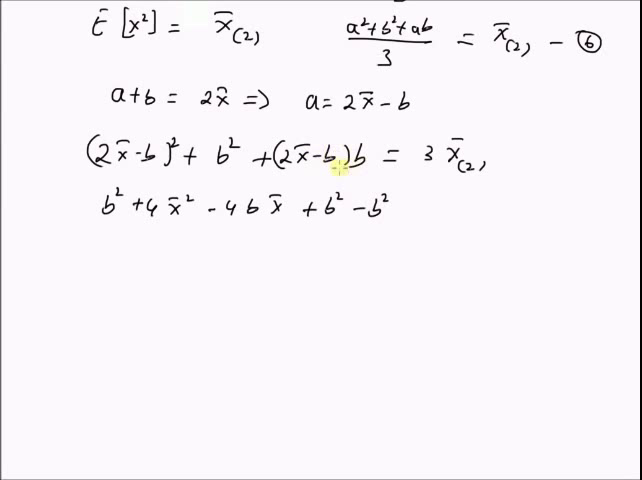 E [x²] = x̄₍₂₎   (a²+b²+ab)/3 = x̄₍₂₎ - ⑥
a+b = 2x̄ => a = 2x̄ - b
(2x̄-b)² + b² + (2x̄-b)b = 3 x̄₍₂₎
b² + 4x̄² - 4bx̄ + b² - b²